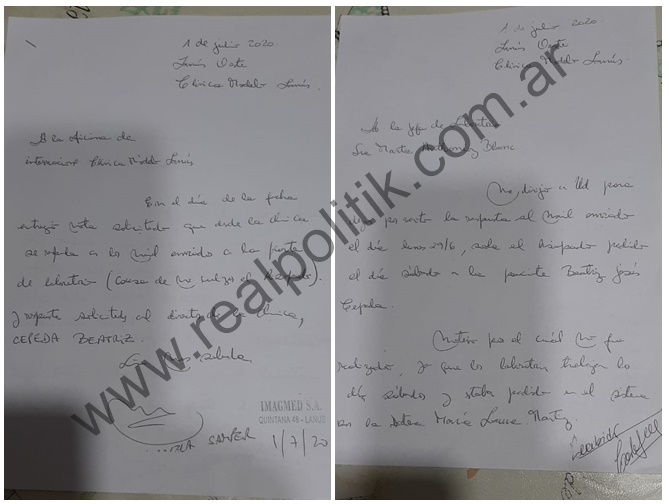 1 de julio 2020
Lanús Oeste
Clínica Modelo Lanús.
A la oficina de
internación Clínica Modelo Lanús
En el día de la fecha
entrego nota solicitando que desde la clínica
se a los mail enviado a la
de laboratorio (Causa de no el hisopado).
y respuesta solicitada al director de la Clínica,
CEPEDA BEATRIZ.
IMAGMED S.A.
QUINTANA 48 - LANUS
1/7/20
1 de julio 2020
Lanús Oeste
Clínica Modelo Lanús.
A la Jefa de Laboratorio
Sra Marta Blanc
Me dirijo a Ud para
por escrito la respuesta al mail enviado
el día lunes 29/6, sobre el hisopado pedido
el día sábado a la paciente Beatriz
Cepeda.
Motivo por el cuál no fue
realizado, ya que los laboratorios trabajan los
días sábados y estaba pedido en el sistema
por la María Laura
Recibido
www.realpolitik.com.ar